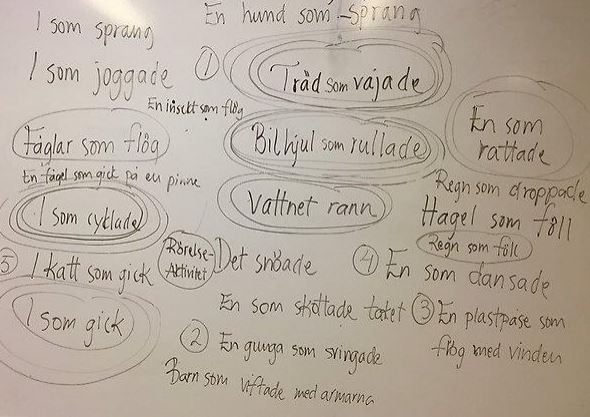 En hund som sprang
I som sprang
I som joggade
①
Träd som vajade
En insekt som flög
En som
rattade
Fåglar som flög
Bilhjul som rullade
En fågel som gick på en pinne
Regn som droppade
I som cyklade
Vattnet rann
Hagel som föll
Regn som föll
Rörelse-
Aktivitet
Det snöade
④ En som dansade
⑤ I katt som gick
En som skottade taket
③ En plastpåse som
flög med vinden
I som gick
② En gunga som svingade
Barn som viftade med armarna